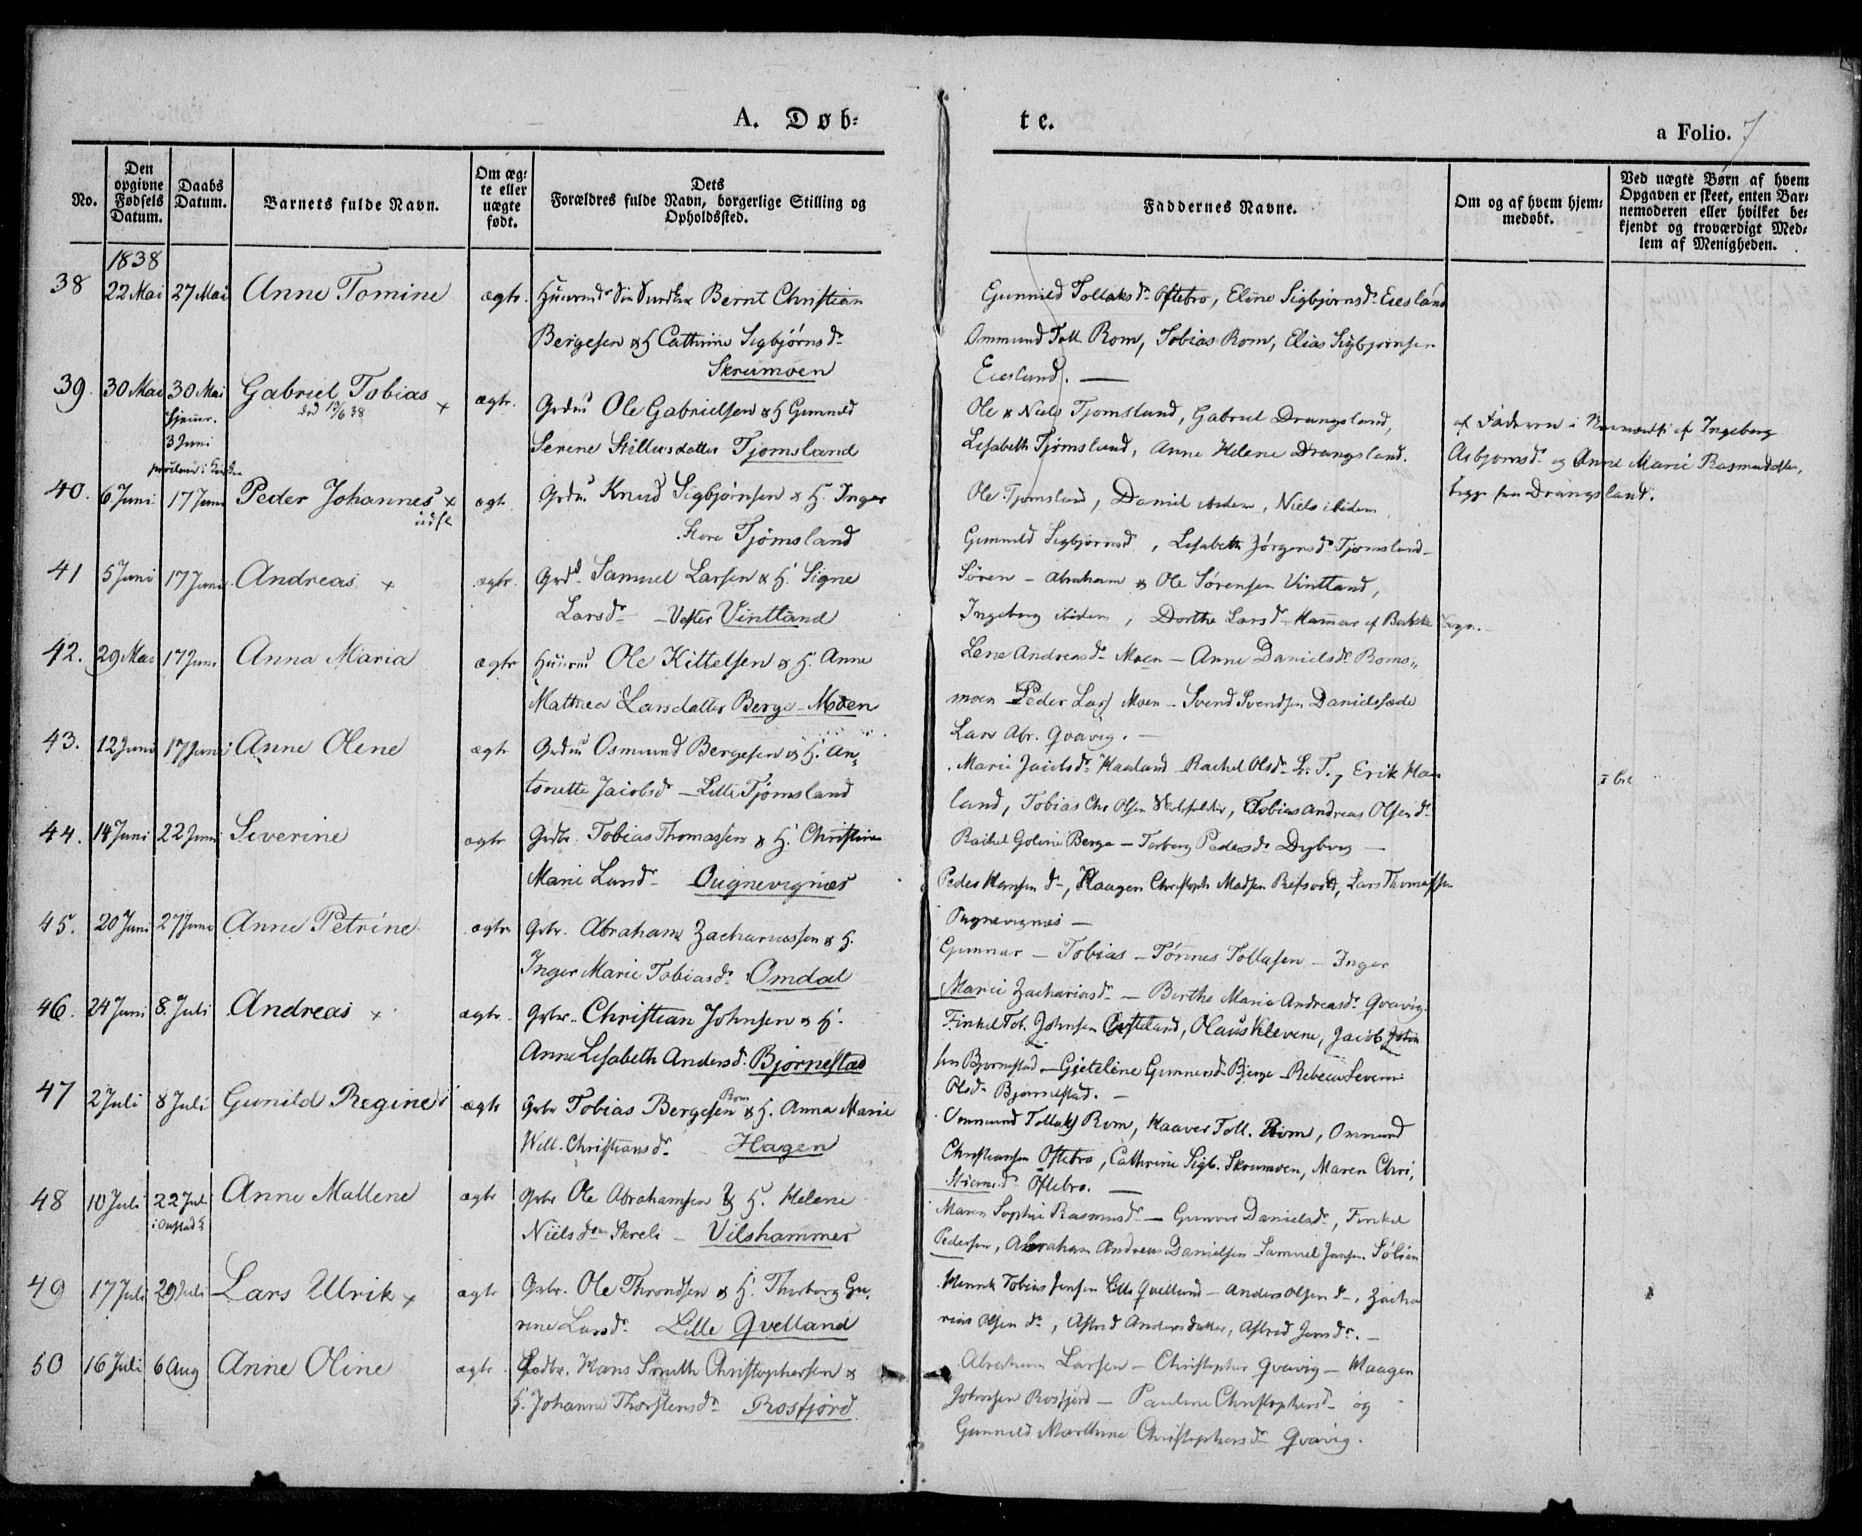 A. Døb-
te.
a Folio. 7
No.
Den opgivne Fødsels Datum.
Daabs Datum.
Barnets fulde Navn.
Om ægte eller uægte født.
Dets Forældres fulde Navn, borgerlige Stilling og Opholdssted.
Faddernes Navne.
Om og af hvem hjemmedøbt.
Ved uægte Børn af hvem Opgaven er skeet, enten Barnemoderen eller hvilket bekjendt og troværdigt Medlem af Menigheden.
1838
38 22 Mai 27 Mai Anne Tomine ægte. Bernt Christian
Bergesen & H Cathrine Sigbjørnsdr
Skrumoen
Gunnild Tollaksdr Oftebro, Eline Sigbjørnsdr Eiesland
Ommund Toll. Rom, Tobias Rom, Elias Sigbjørnsen
Eiesland. —
39. 30 Mai 30 Mai Gabriel Tobias ægtr. Ole Gabrielsen & H Gunnild
hjemr. 3 Juni
Serene datter Tjomsland
Ole & Niels Tjomsland, Gabriel Drangsland,
Lisabeth Tjømsland, Anne Helene Drangsland.
af Faderen i af Ingeborg
Asbjornsdr og Anne Marie Rasmusdatter,
begge fra Drangsland.
40. 6 Juni 17 Juni Peder Johannes ægtr Knud Sigbjørnsen & H. Inger
Store Tjømsland
Ole Tjomsland, Daniel ibidem, Niels ibidem
Gunnild Sigbjørnsdr, Lisabeth Jørgensdr Tjomsland
41 5 Juni 17 Juni Andreas ægtr. Samuel Larsen & H. Signe
Larsdr — Vester Vintland
Søren — Abraham & Ole Sørensen Vintland,
Ingeborg ibidem, Dorthe Larsdr
42. 29 Mai 17 Juni Anna Maria ægtr Ole Kittelsen & H. Anne
Mathea Larsdatter Berge-Moen
Lene Andreasdr Moen — Anne Danielsdr Roms-
moen Peder Lars Moen — Svend Svendsen Danielssæde
Lars Abr. Qvavig. —
43. 12 Juni 17 Juni Anne Olene ægtr Osmund Bergesen & H. An-
tonette Jacobsdr — Lille Tjomsland
Marie Haaland Rachel Olsdr L. T., Erik Haa
land, Tobias Chr Olsen, Tobias Andreas Olsen dr
44. 14 Juni 22 Juni Severine ægtr Grdbr. Tobias Thomassen & H. Christine
Marie Larsdr
Rachel Goline Berge — Torborg Pedersdr Dybvig —
Peder Hansen dr, Haagen Christoph Madsen, Lars Thomassen
45. 20 Juni 27 Juni Anne Petrine ægtr Grbr. Abraham Zachariassen & H.
Inger Marie Tobiasdr Omdal
Gunnar — Tobias — Tønnes Tollefsen — Inger
Marie Zachariasdr — Berthe Marie Andreasdr Qvavig.
46. 24 Juni 8. Juli Andreas ægtr. Grbr. Christian Johnsen & H.
Anne Lisabeth Andersdr Bjørnestad
Finkel Tob. Johnsen, Olaus Klevene, Jacob John
sen Bjørnestad — Gjeteline Gunnersdr Bjerge — Rebecca Severine
Olsdr Bjørnestad. —
47 2 Juli 8 Juli Gunild Regine ægtr Grbr Tobias Bergesen Rom & H. Anna Marie
Will. Christiansdr Hagen
Ommund Tollaks Rom, Haaver Toll. Rom, Ommund
Christiansen Oftebro, Cathrine Sigb. Skrumoen, Maren Chri-
stiansdr Oftebro. —
48 10 Juli 22 Jul Anne Mallene ægtr Grbr Ole Abrahamsen & H. Helene
Nielsdr Skreli — Vilshammer
Maren Sophie Rasmusdr — Gunvor Danielsdr, Finkel
Pedersen, Abraham Andreas Danielsen Samuel Jansen
49 17 Juli 29 Juli Lars Ulrik ægtr Grbr. Ole Throndsen & H. Thorborg Gu-
rine Larsdr Lille Qvelland
Tobias Jensen Lille Qvelland — Anders Olsen dr, Zacha
rias Olsen dr, Astrid Andersdatter, Astrid Jensdr. —
50 16 Juli 6 Aug Anne Oline ægtr. Gadbr. Hans Smith Christophersen &
H. Johanne Thorstensdr Rosfjord
Abraham Larsen — Christopher Qvavig — Haagen
Johnsen Rosfjord — Pauline Christophersdr og
Gunnild Marthine Christophersdr Qvavig.